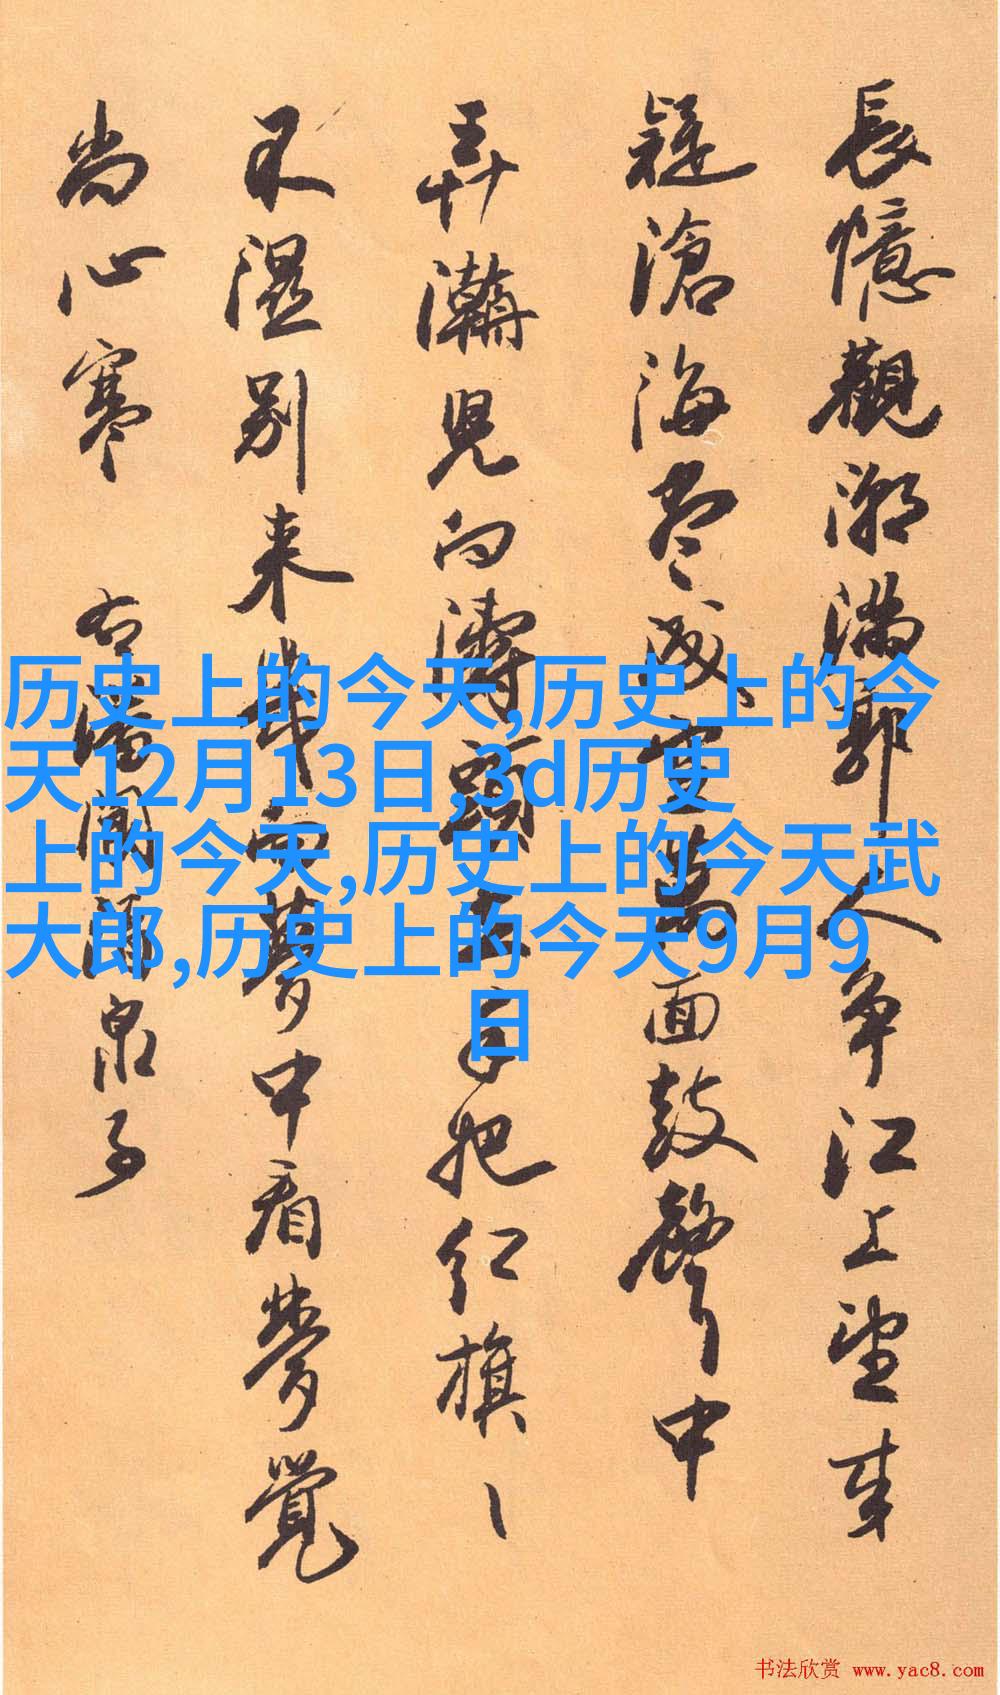 長憶觀潮滿郭人争江上望来
疑滄海尽成空萬面鼓聲中
弄潮兒向濤頭立手把红旗、
不湿别来幾向夢中看夢覺
尚心寒
右潘閬酒泉子
历史上的今天,历史上的今
天12月13日,3d历史
上的今天,历史上的今天武
大郎,历史上的今天9月9
日
书法欣赏 www.yac8.com